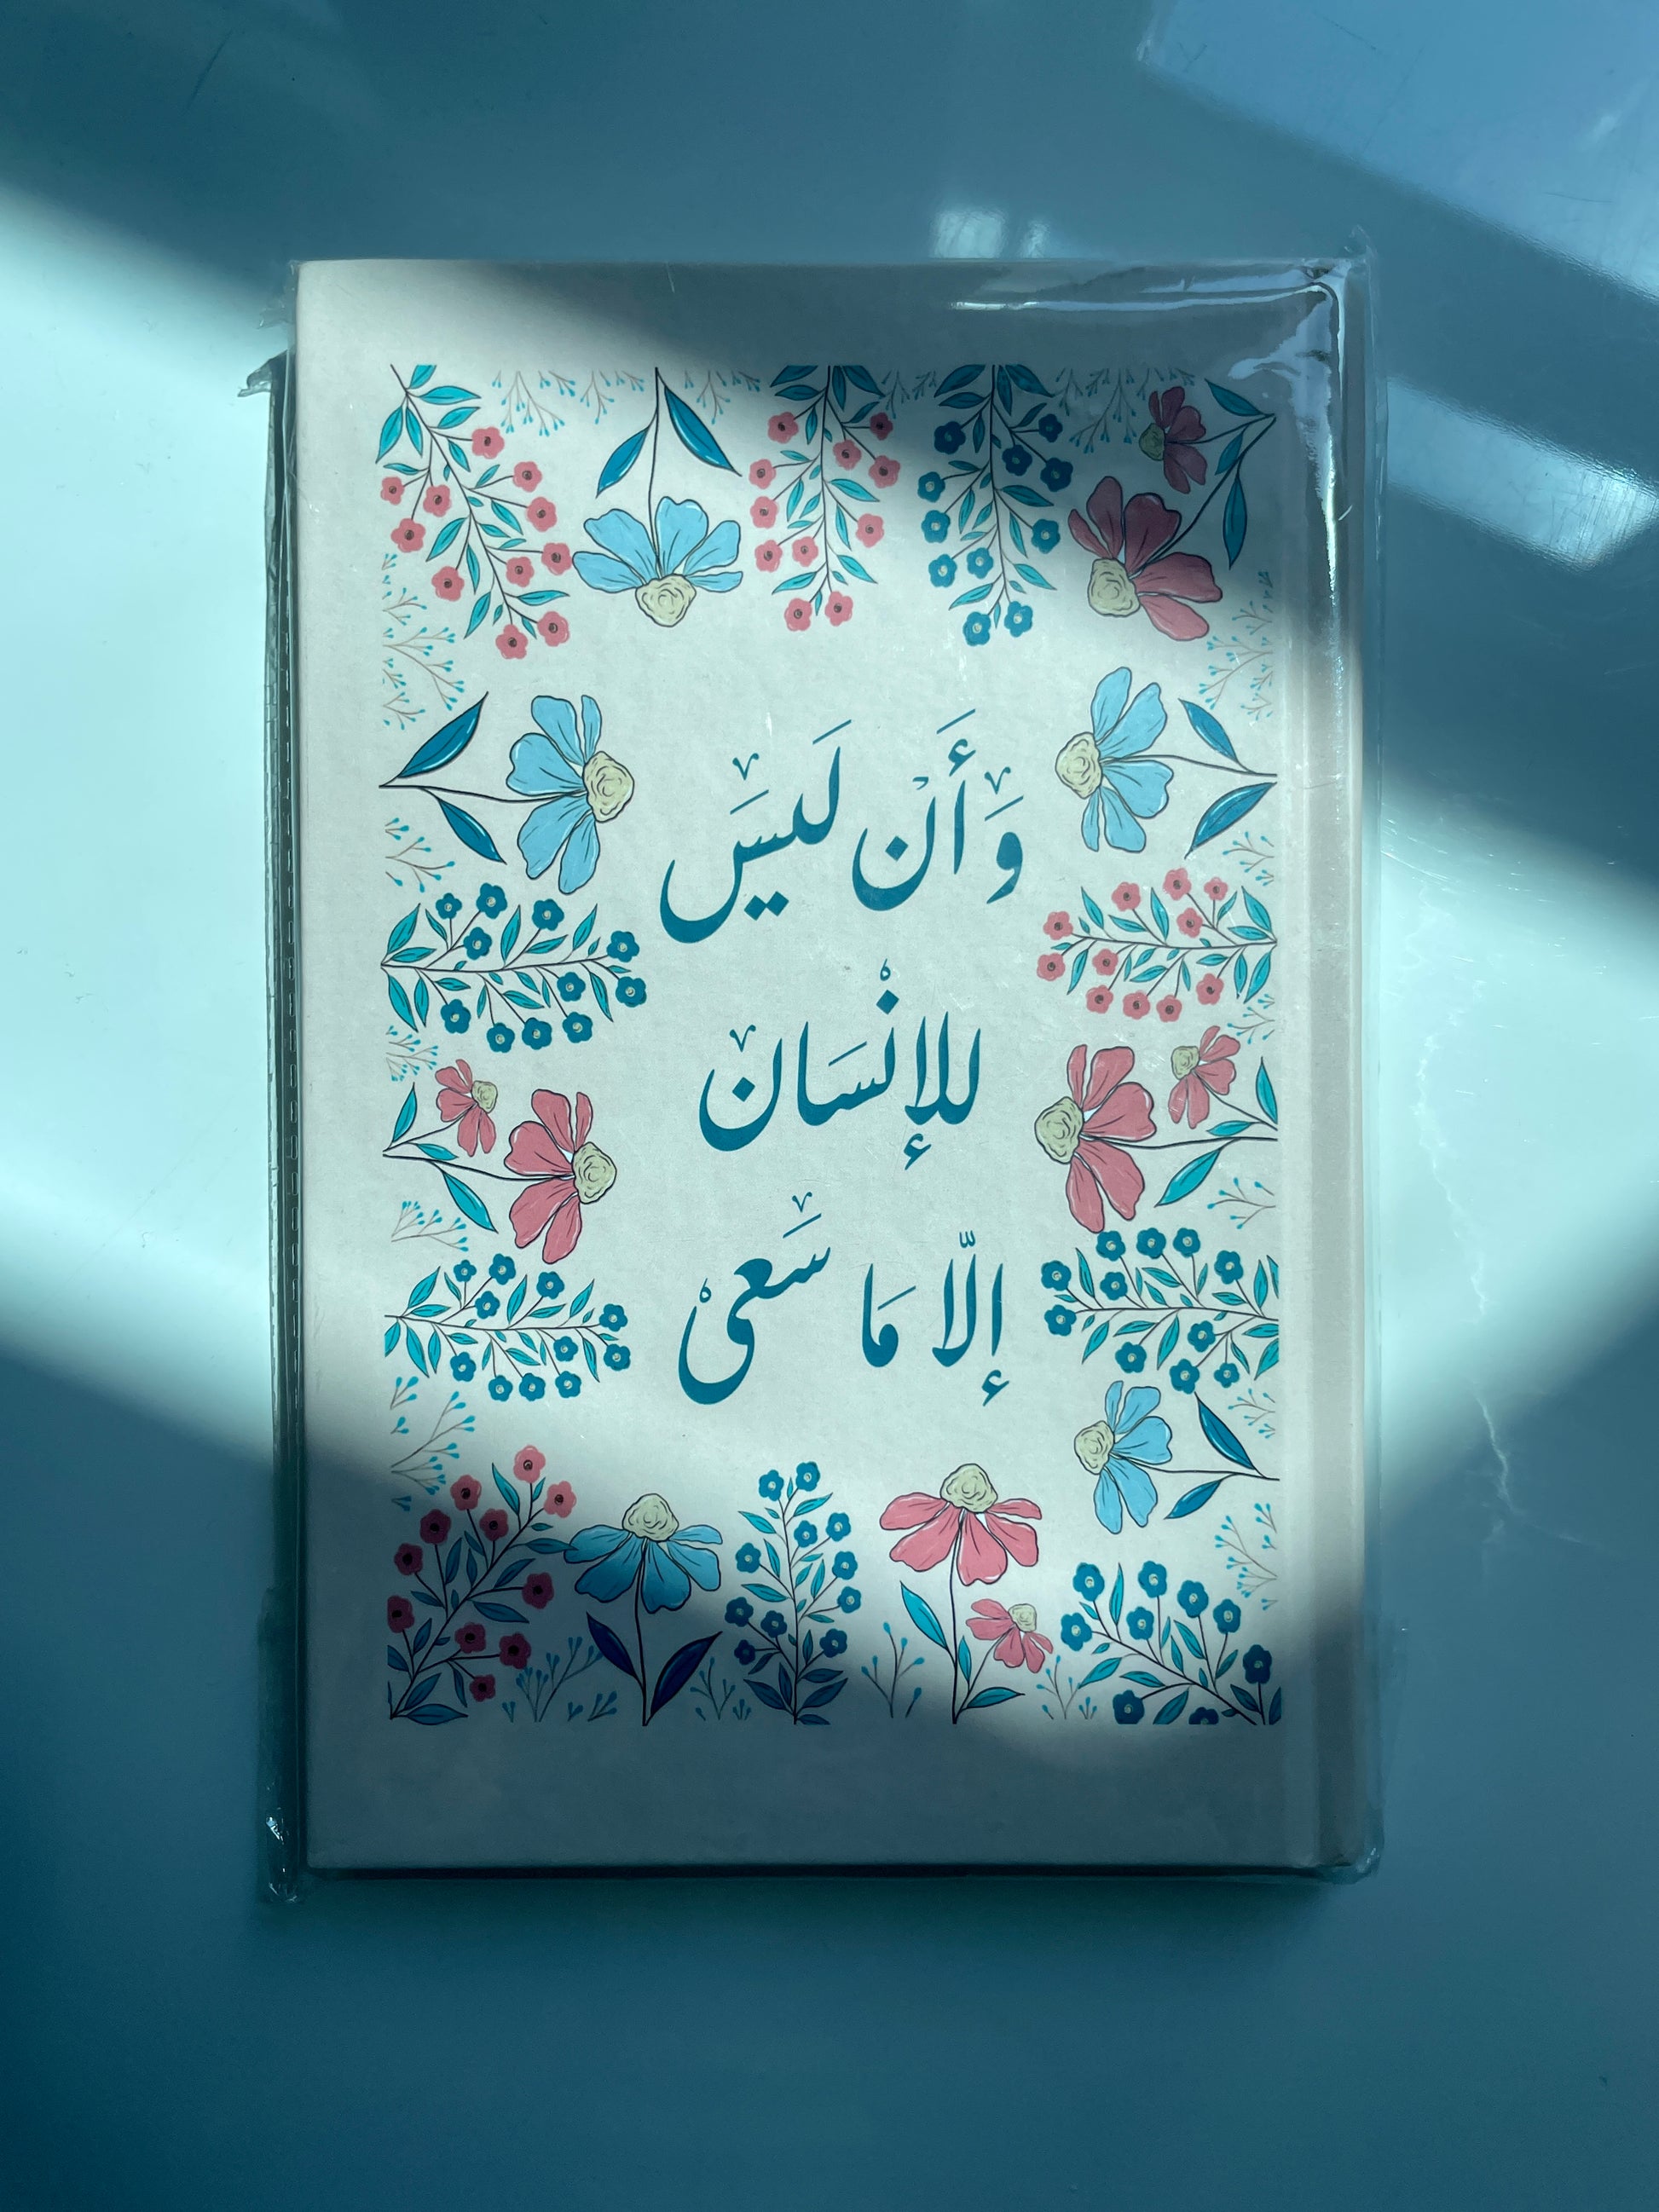 وَأَن لَيسَ
للإنْسَان
إلّا مَا سَعى